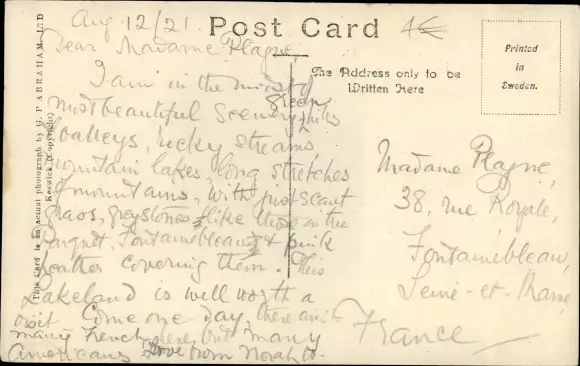 Aug 12/21.
Post Card
4€
Dear Madame Plagne,
I am in the midst of
most beautiful scenery, steep hills
valleys, rocky streams
mountain lakes, long stretches
of mountains, with just scant
grass, grey stones like those in the
Fontainebleau & pink
heather covering them. This
Lakeland is well worth a
visit Come one day, there aren't
many French here, but many
Americans Love from Norah
The Address only to be
Written Here
Printed
in
Sweden.
Madame Plagne,
38, rue Royale,
Fontainebleau,
Seine-et-Marne,
France
This Card is an actual photograph by G. P. ABRAHAM, LTD
Keswick (Copyright)